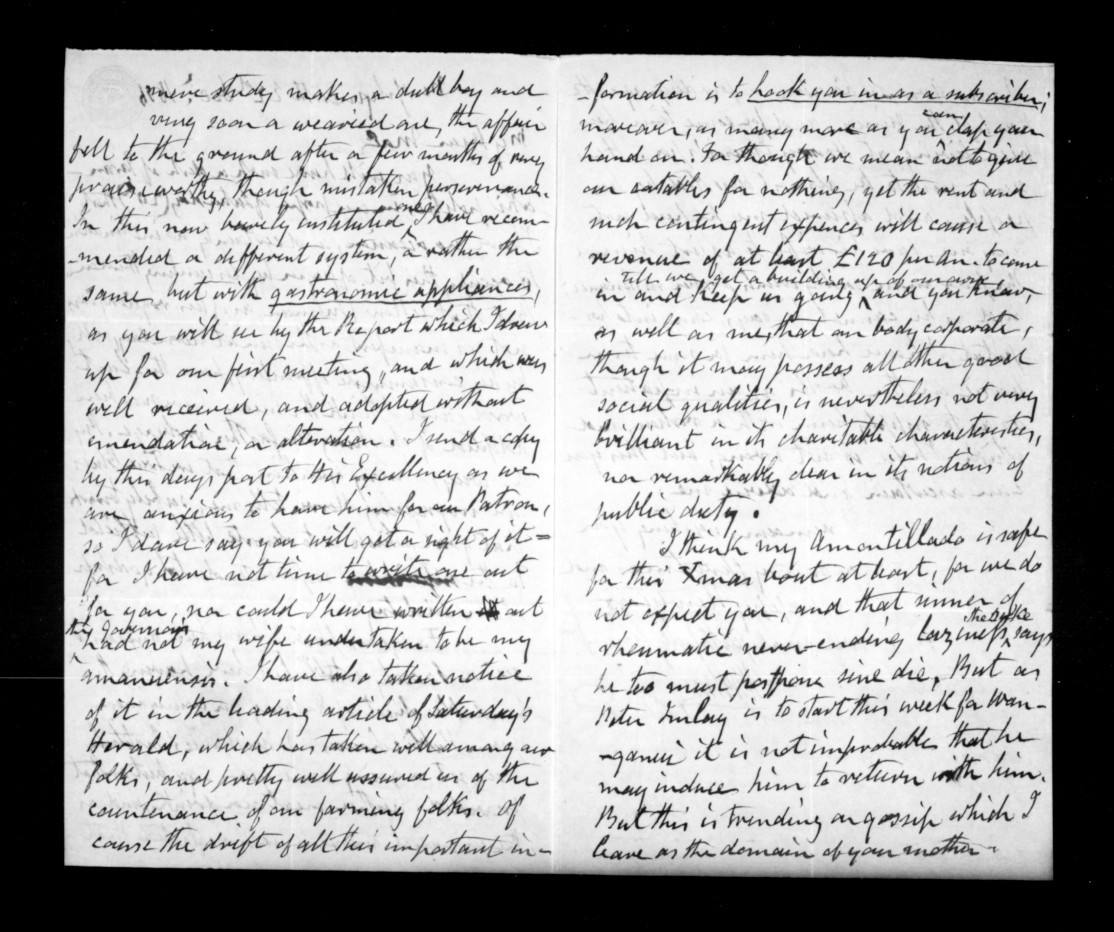 mere study makes a dull boy and
very soon a wearied one, the affair
fell to the ground after a few months of very
praiseworthy, though mistaken perseverance.
In this now newly instituted one I have recom-
-mended a different system, or rather the
same but with gastronomic appliances,
as you will see by the Report which I drew
up for our first meeting, and which was
well received, and adopted without
emendation, or alteration. I send a copy
by this day's post to His Excellency as we
are anxious to have him for our Patron,
so I dare say you will get a sight of it =
for I have not time to write one out
for you, nor could I have written out
the Governor's
had not my wife undertaken to be my
amanuensis. I have also taken notice
of it in the leading article of Saturday's
Herald, which has taken well among our
folks, and pretty well assured us of the
countenance of our farming folks. Of
course the drift of all this important in-
-formation is to hook you in as a subscriber;
can
moreover, as many more as you clap your
hand on. For though we mean not to give
our eatables for nothing, yet the rent and
such contingent expences will cause a
revenue of at least £120 per an. to come
till we get a building up of our own
in and keep us going, and you know,
as well as me, that our body corporate,
though it may possess all other good
social qualities, is nevertheless not very
brilliant in its charitable characteristics,
nor remarkably clear in its notions of
public duty.
I think my Amontillado is safe
for this Xmas bout at least, for we do
not expect you, and that sinner of
rheumatic never-ending laziness, says
he too must postpone sine die, But as
Peter Imlay is to start this week for Wan-
-ganui it is not improbable that he
may induce him to return with him.
But this is trending on gossip which I
leave as the domain of your mother.